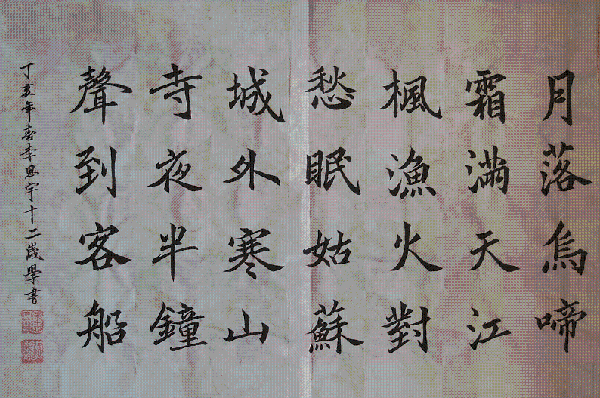 月落烏啼
霜滿天江
楓漁火對
愁眠姑蘇
城外寒山
寺夜半鐘
聲到客船
丁亥年 李 宇十二歲學書